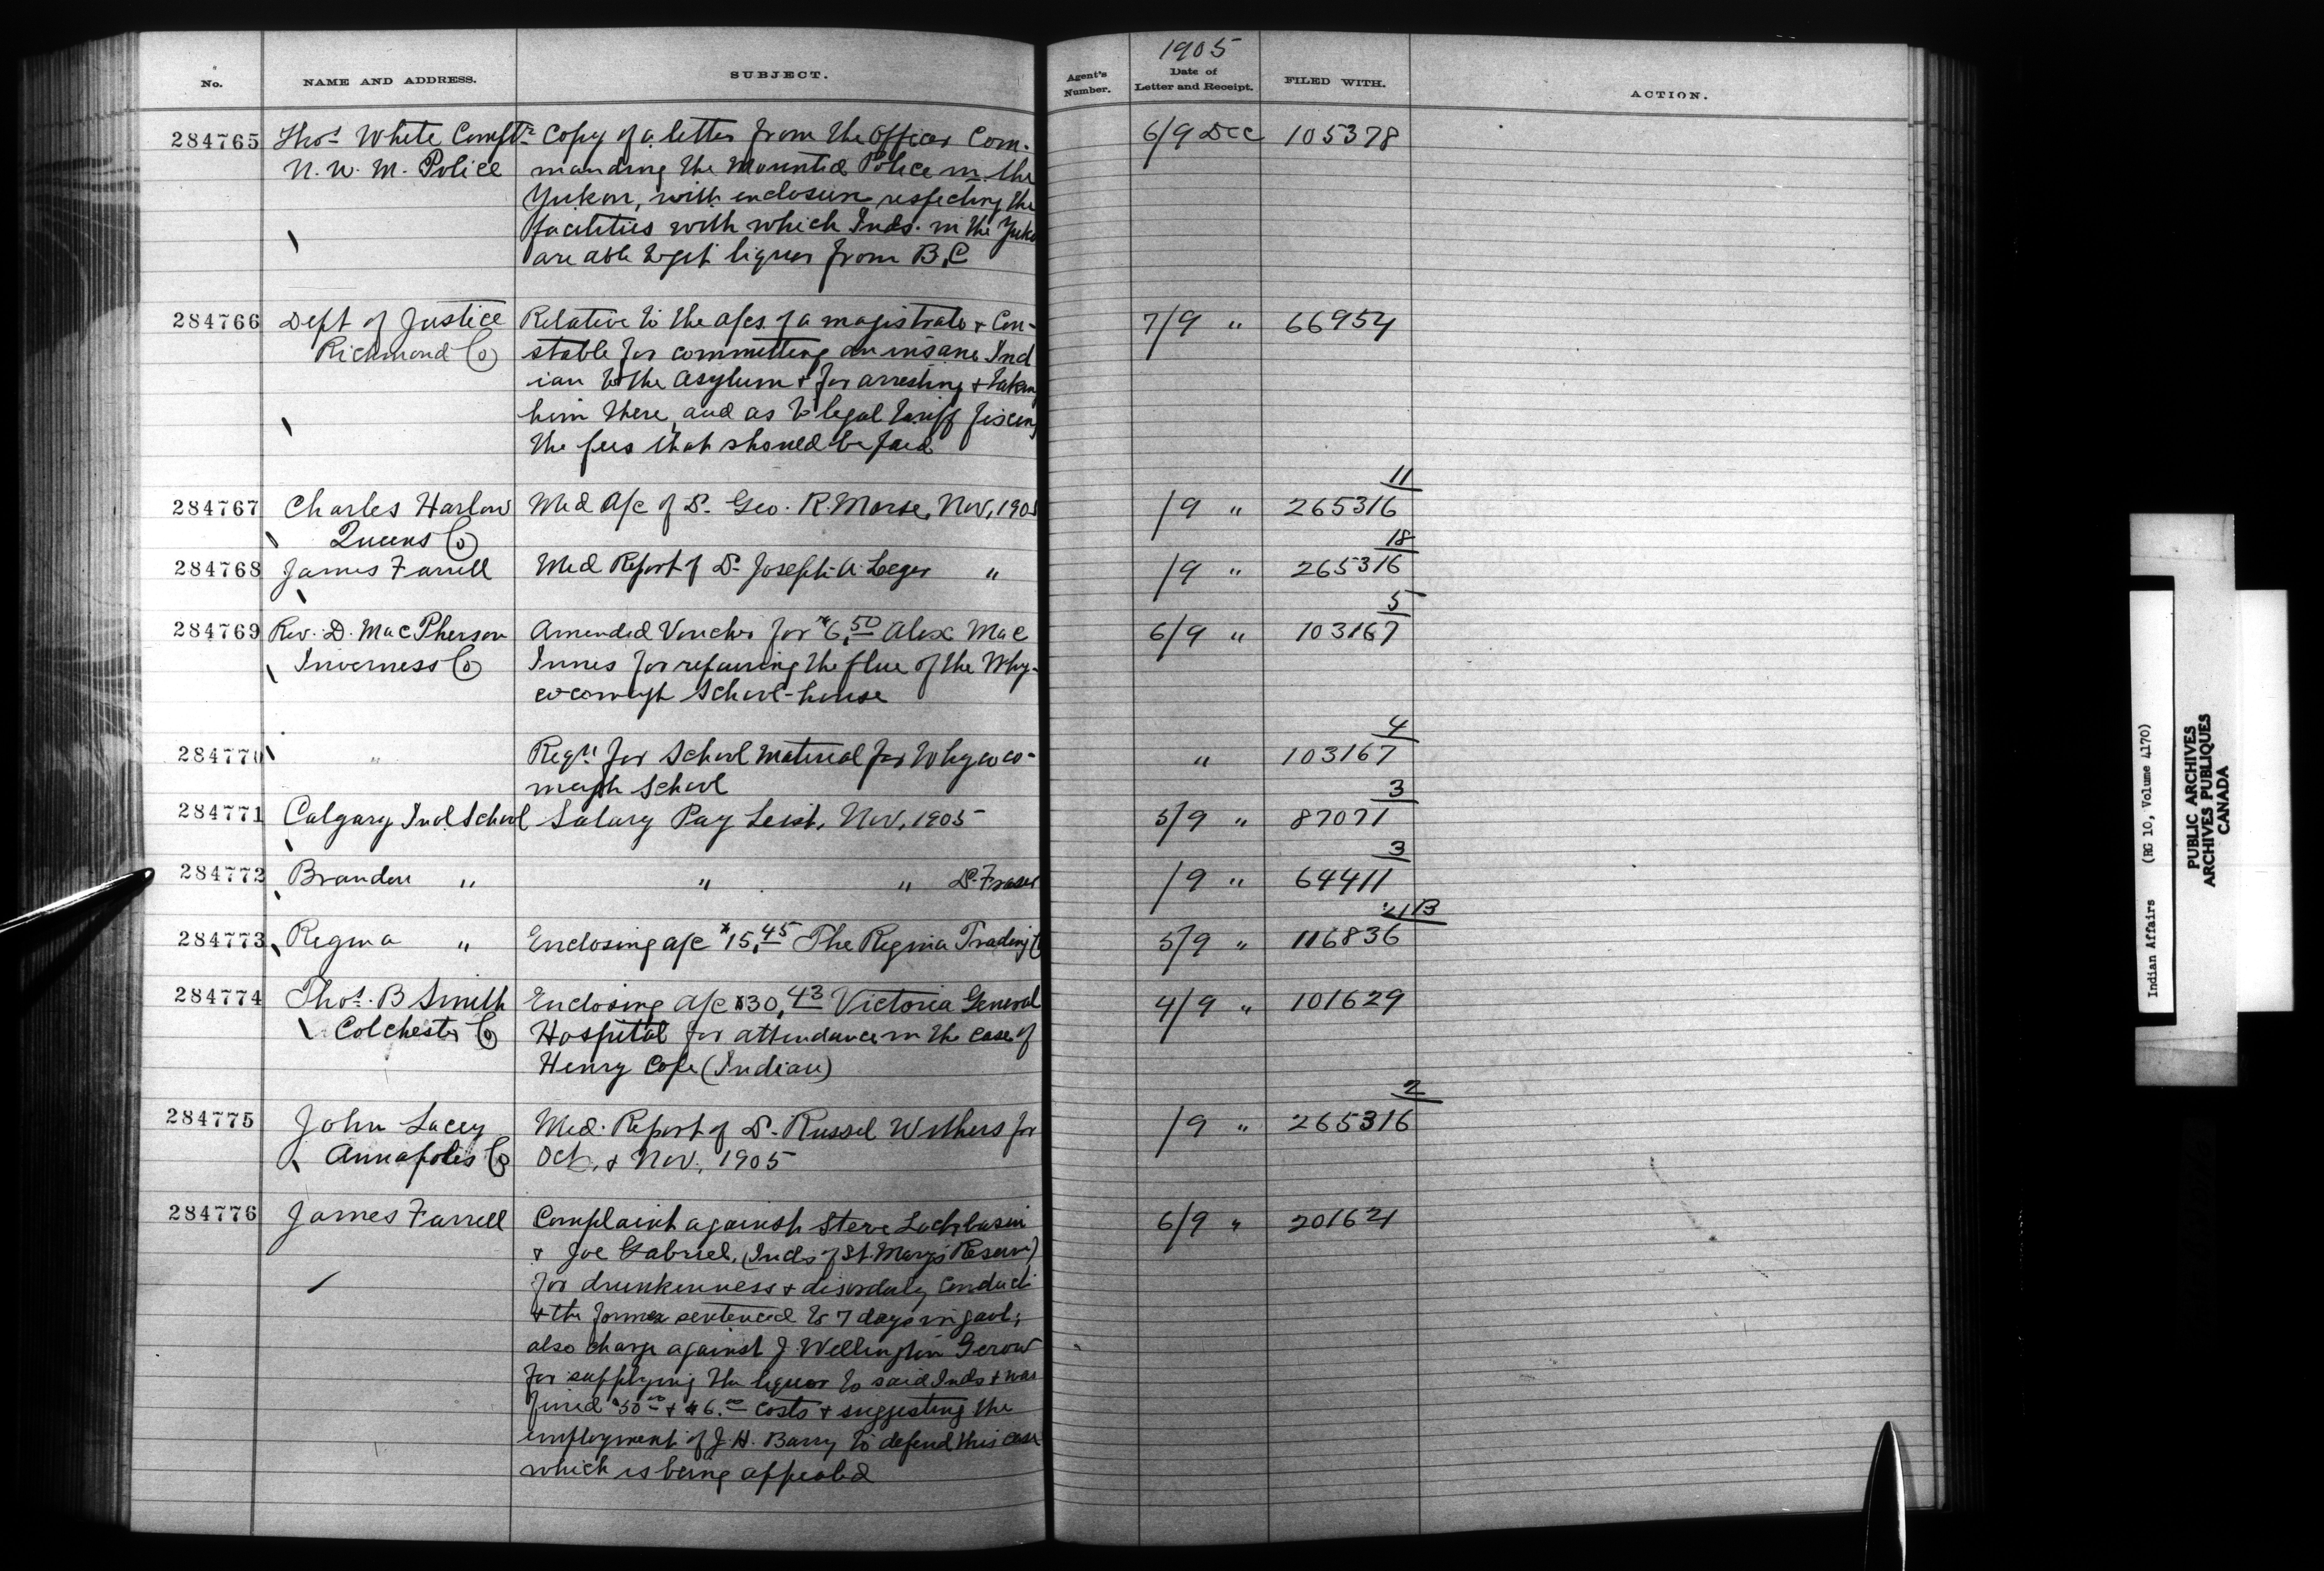 No.
NAME AND ADDRESS.
SUBJECT.
Agent's Number.
1905
Date of Letter and Receipt.
FILED WITH.
ACTION.
284765 Thos. White Compt. Copy of a letter from the Officer Com- 6/9 Dec 105378
N. W. M. Police manding the Mounted Police in the
Yukon, with enclosure respecting the
facilities with which Inds. in the Yuko
are able to get liquor from B.C
284766 Dept of Justice Relative to the a/cs of a magistrate & Con- 7/9 " 66954
Richmond Co stable for committing an insane Ind
ian to the Asylum & for arresting & taking
him there, and as to legal tariff fixing
the fees that should be paid
11
284767 Charles Harlow Med A/c of Dr. Geo. R. Morse, Nov, 1905 /9 " 265316
Queens Co
18
284768 James Farrell Med Report of Dr. Joseph A. Leger " /9 " 265316
5
284769 Rev. D. MacPherson Amended Voucher for $6.50 Alex Mac 6/9 " 103167
Inverness Co Innes for repairing the flue of the Why-
cocomagh School-house
4
284770 " Reqn. for School material for Whycoco- " 103167
magh School
3
284771 Calgary Ind. School Salary Pay List, Nov, 1905 5/9 " 87071
3
284772 Brandon " " " Dr. Fraser /9 " 64411
21B
284773 Regina " Enclosing a/c $15.45 The Regina Trading C 5/9 " 116836
284774 Thos. B Smith Enclosing a/c $30.43 Victoria General 4/9 " 101629
Colchester Co Hospital for attendance in the case of
Henry Cope (Indian)
2
284775 John Lacey Med. Report of Dr. Russel Withers for /9 " 265316
Annapolis Co Oct. & Nov. 1905
284776 James Farrell Complaint against Steve 6/9 " 201621
& Joe Gabriel, (Inds of St. Mary's Reserve)
for drunkenness & disorderly conduct
& the former sentenced to 7 days in gaol;
also charge against J. Wellington Gerow
for supplying the liquor to said Inds & was
fined $50.00 & $6.00 costs & suggesting the
employment of J. H. Barry to defend this case
which is being appealed
Indian Affairs (RG 10, Volume 4170)
PUBLIC ARCHIVES
ARCHIVES PUBLIQUES
CANADA